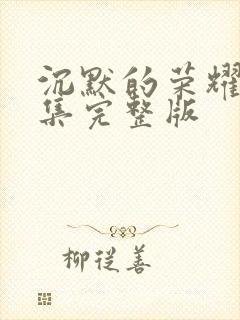 沉默的荣耀
集完整版
柳从善